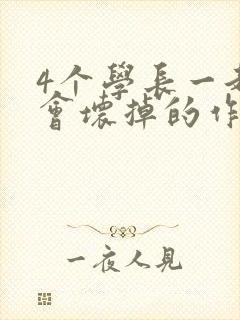 4个學長一
會壞掉的作
一夜人見